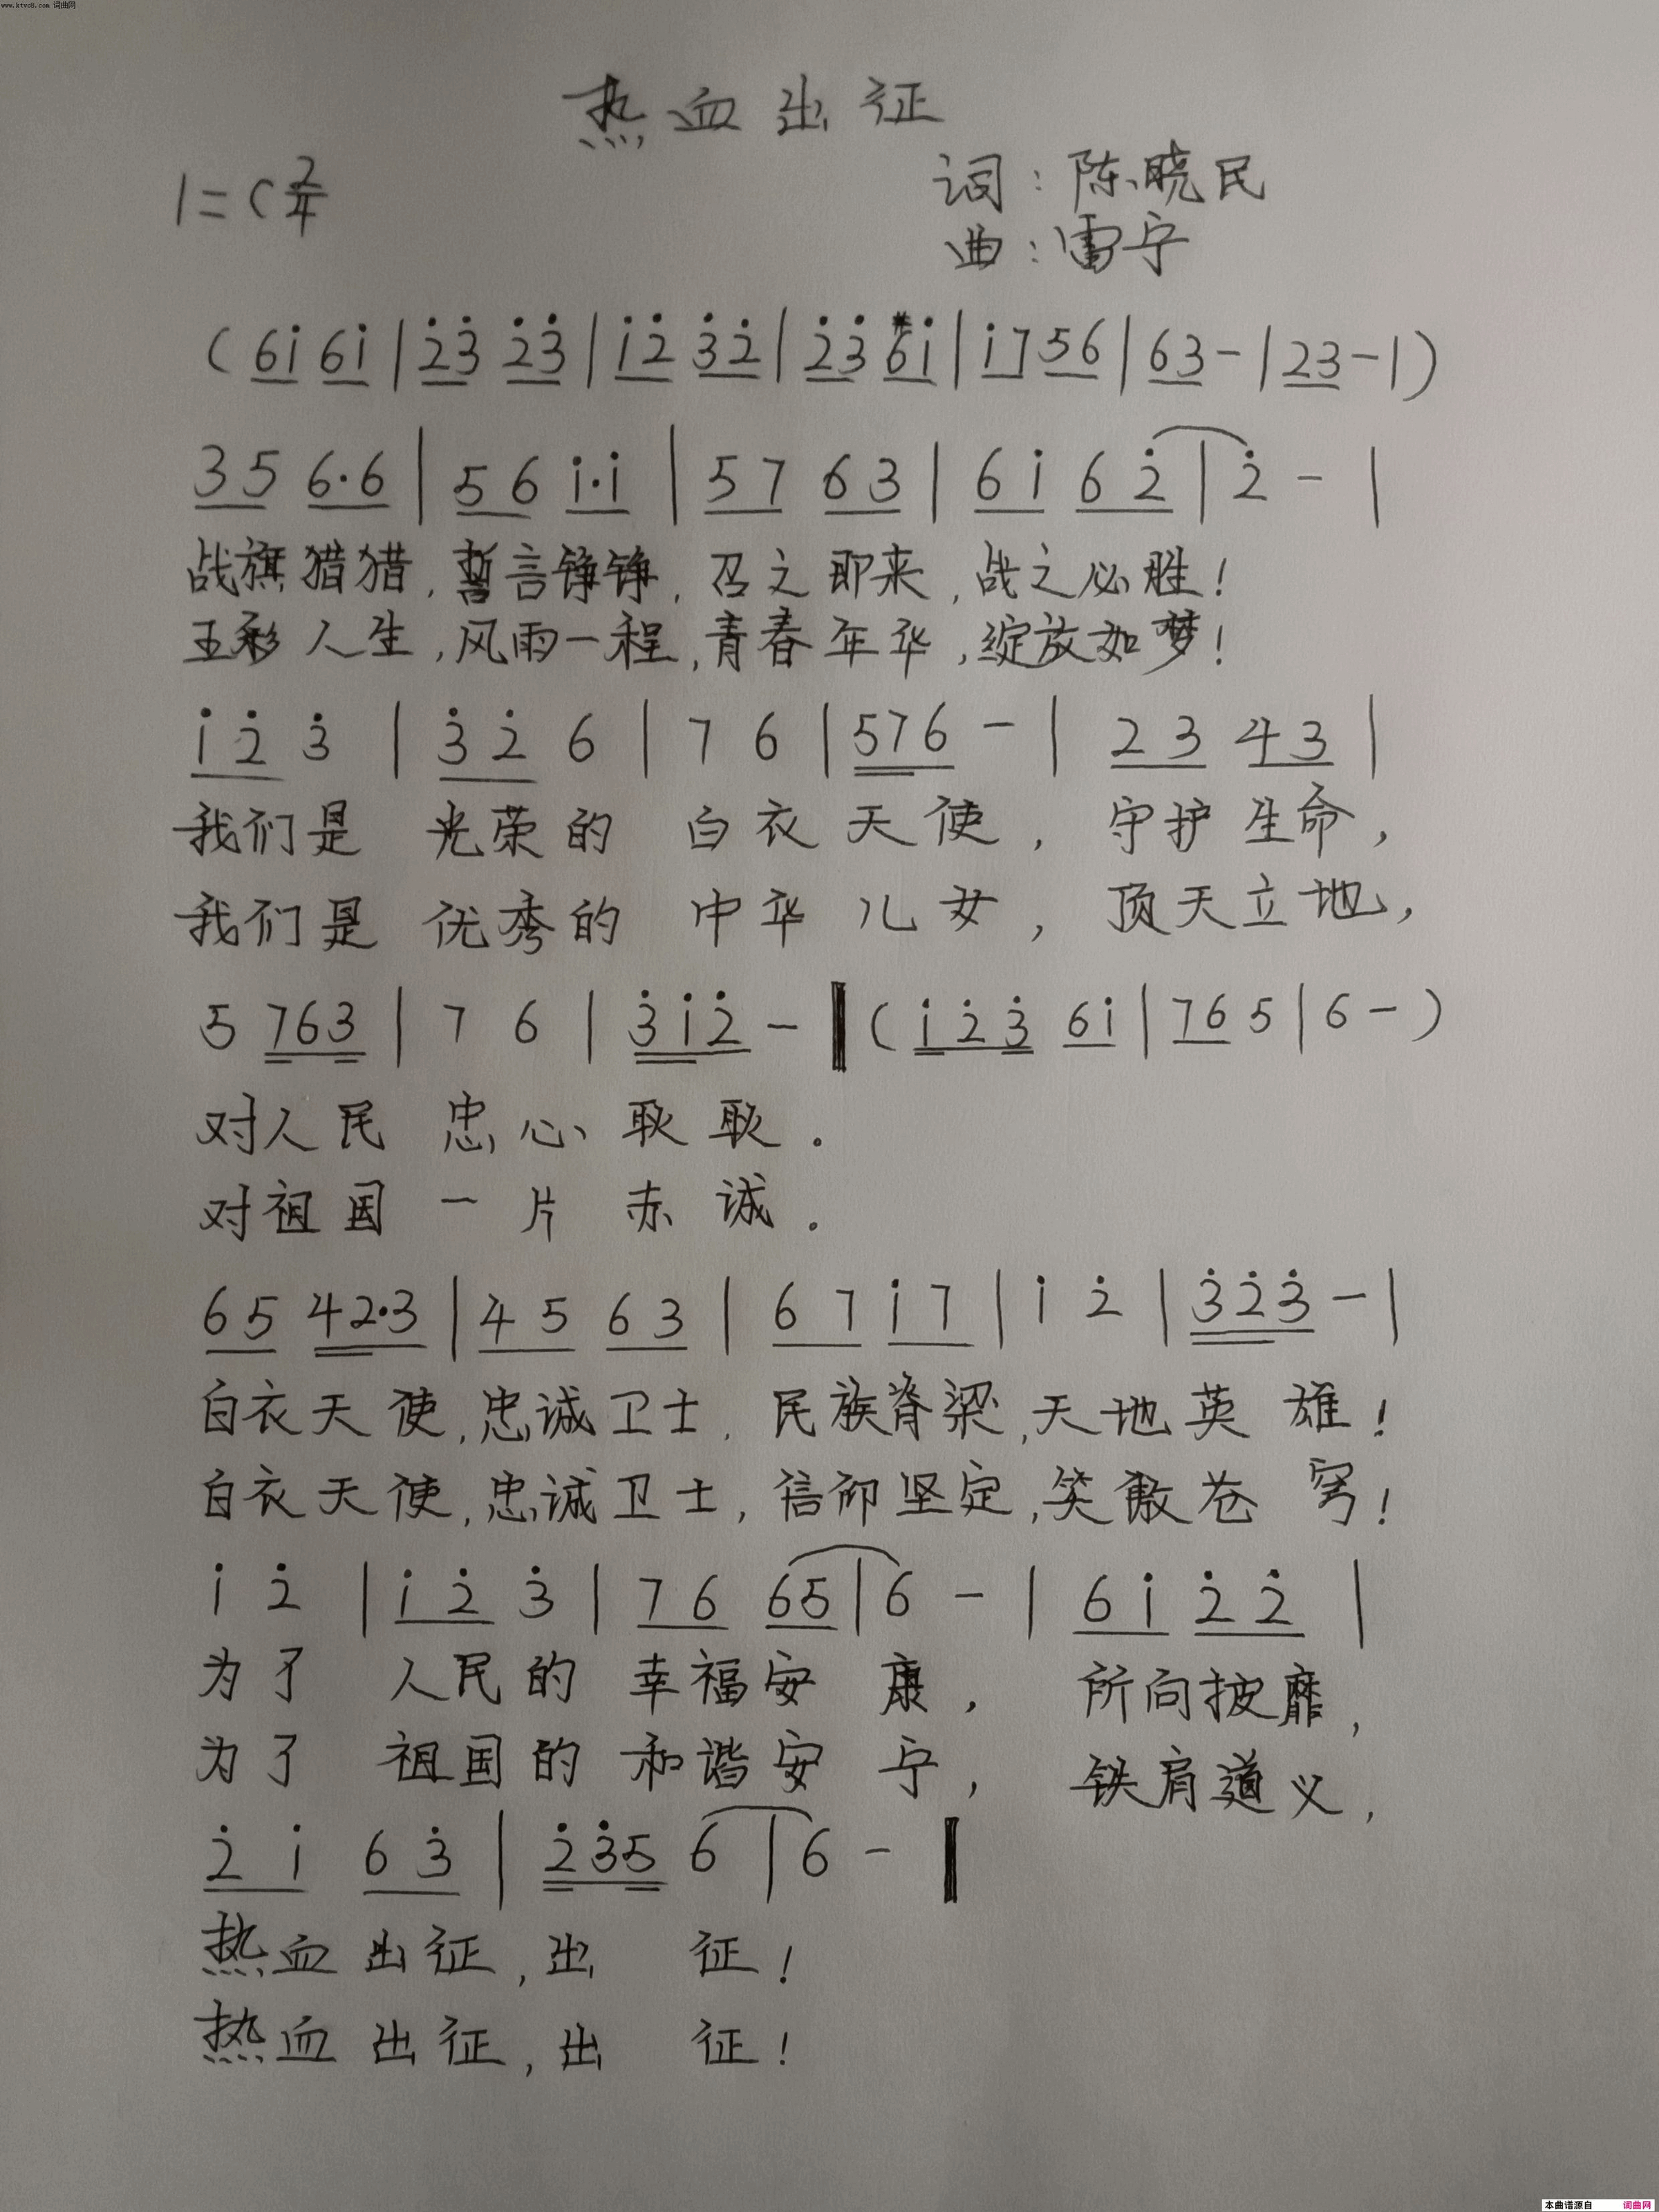 www.ktvc8.com 词曲网
热血出征
1=C 2/4
词:陈晓民
曲:雷宁
(6i 6i|2̇3̇ 2̇3̇|i2̇ 3̇2̇|2̇3̇ #6i|i7 56|63-|23-|)
35 6·6|56 i·i|57 63|6i 62̇|2̇-|
战旗猎猎,誓言铮铮,召之即来,战之必胜!
五彩人生,风雨一程,青春年华,绽放如梦!
i2̇ 3̇|3̇2̇ 6|7 6|576 -|23 43|
我们是 光荣的 白衣天使, 守护生命,
我们是 优秀的 中华儿女, 顶天立地,
5 763|7 6|3̇i2̇ -‖(i2̇3̇ 6i|76 5|6-)
对人民 忠心耿耿.
对祖国 一片赤诚.
65 42·3|45 63|67 i7|i 2̇|3̇2̇3̇ -|
白衣天使,忠诚卫士,民族脊梁,天地英雄!
白衣天使,忠诚卫士,信仰坚定,笑傲苍穹!
i 2̇|i2̇ 3̇|76 65|6 -|6i 2̇2̇|
为了 人民的 幸福安康, 所向披靡,
为了 祖国的 和谐安宁, 铁肩道义,
2̇i 63̇|2̇3̇5 6|6 -‖
热血出征,出 征!
热血出征,出 征!
本曲谱源自 词曲网